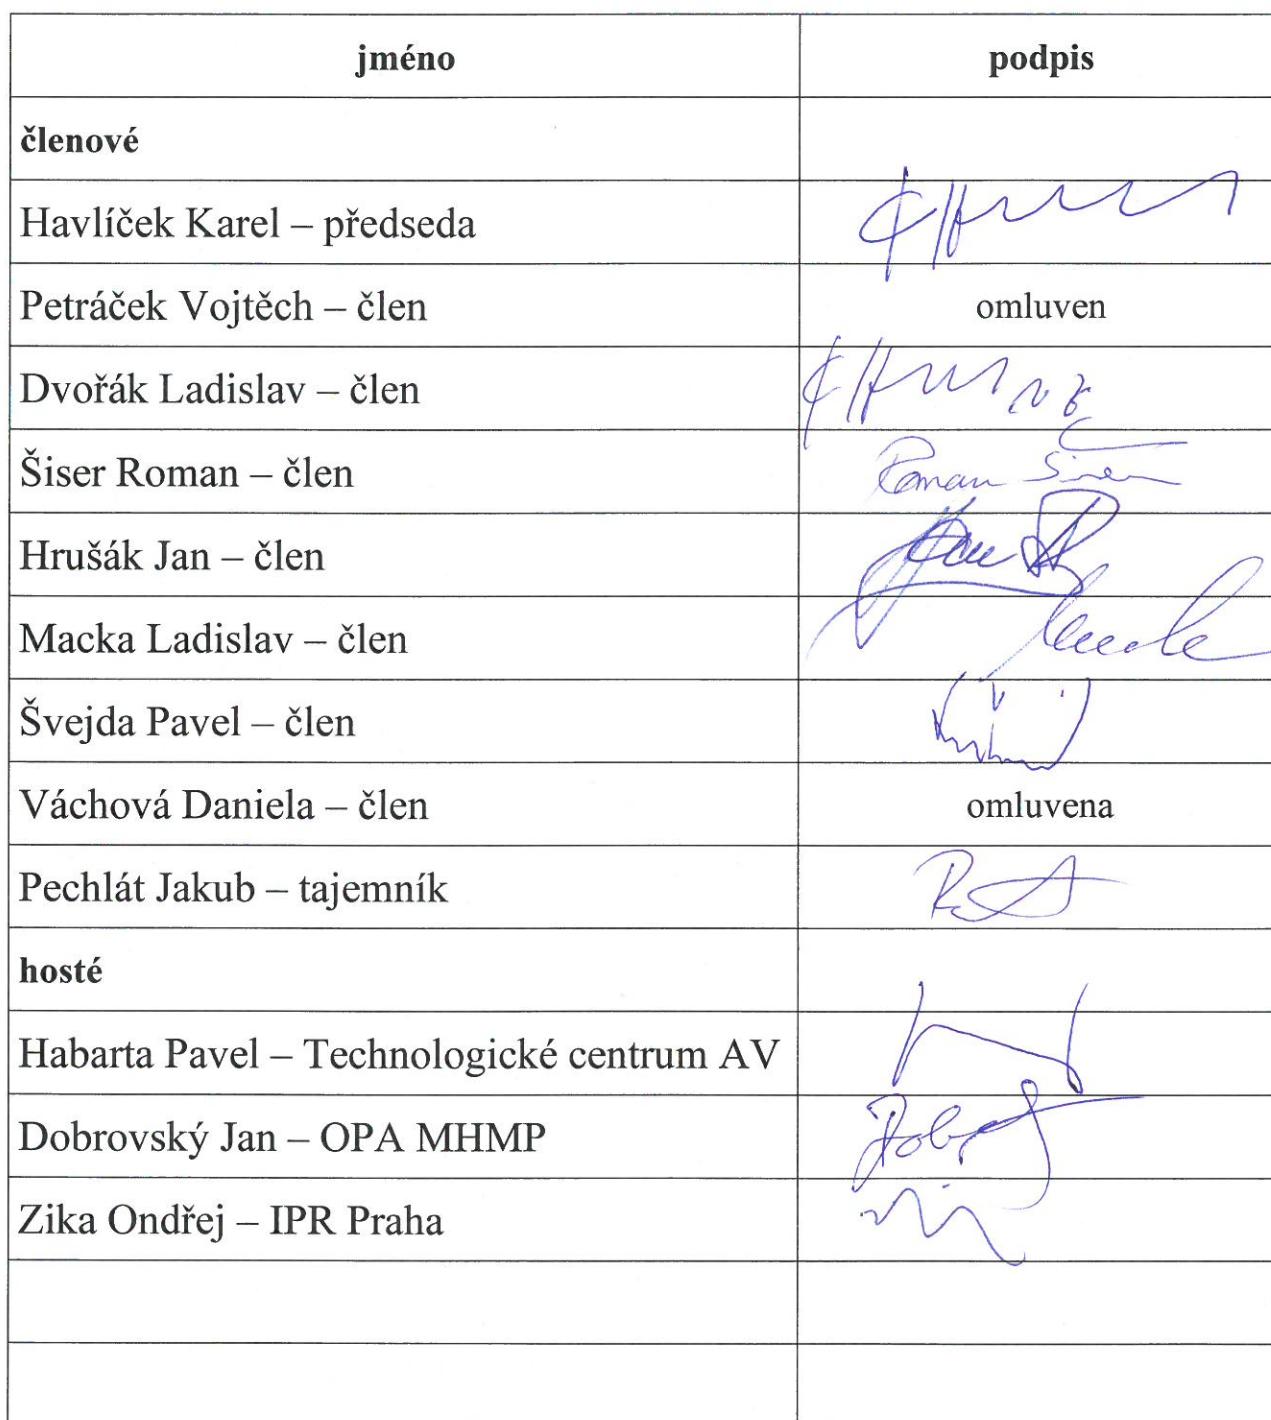 jméno podpis
členové
Havlíček Karel – předseda
Petráček Vojtěch – člen omluven
Dvořák Ladislav – člen
Šiser Roman – člen Roman Šiser
Hrušák Jan – člen
Macka Ladislav – člen
Švejda Pavel – člen
Váchová Daniela – člen omluvena
Pechlát Jakub – tajemník
hosté
Habarta Pavel – Technologické centrum AV
Dobrovský Jan – OPA MHMP
Zika Ondřej – IPR Praha